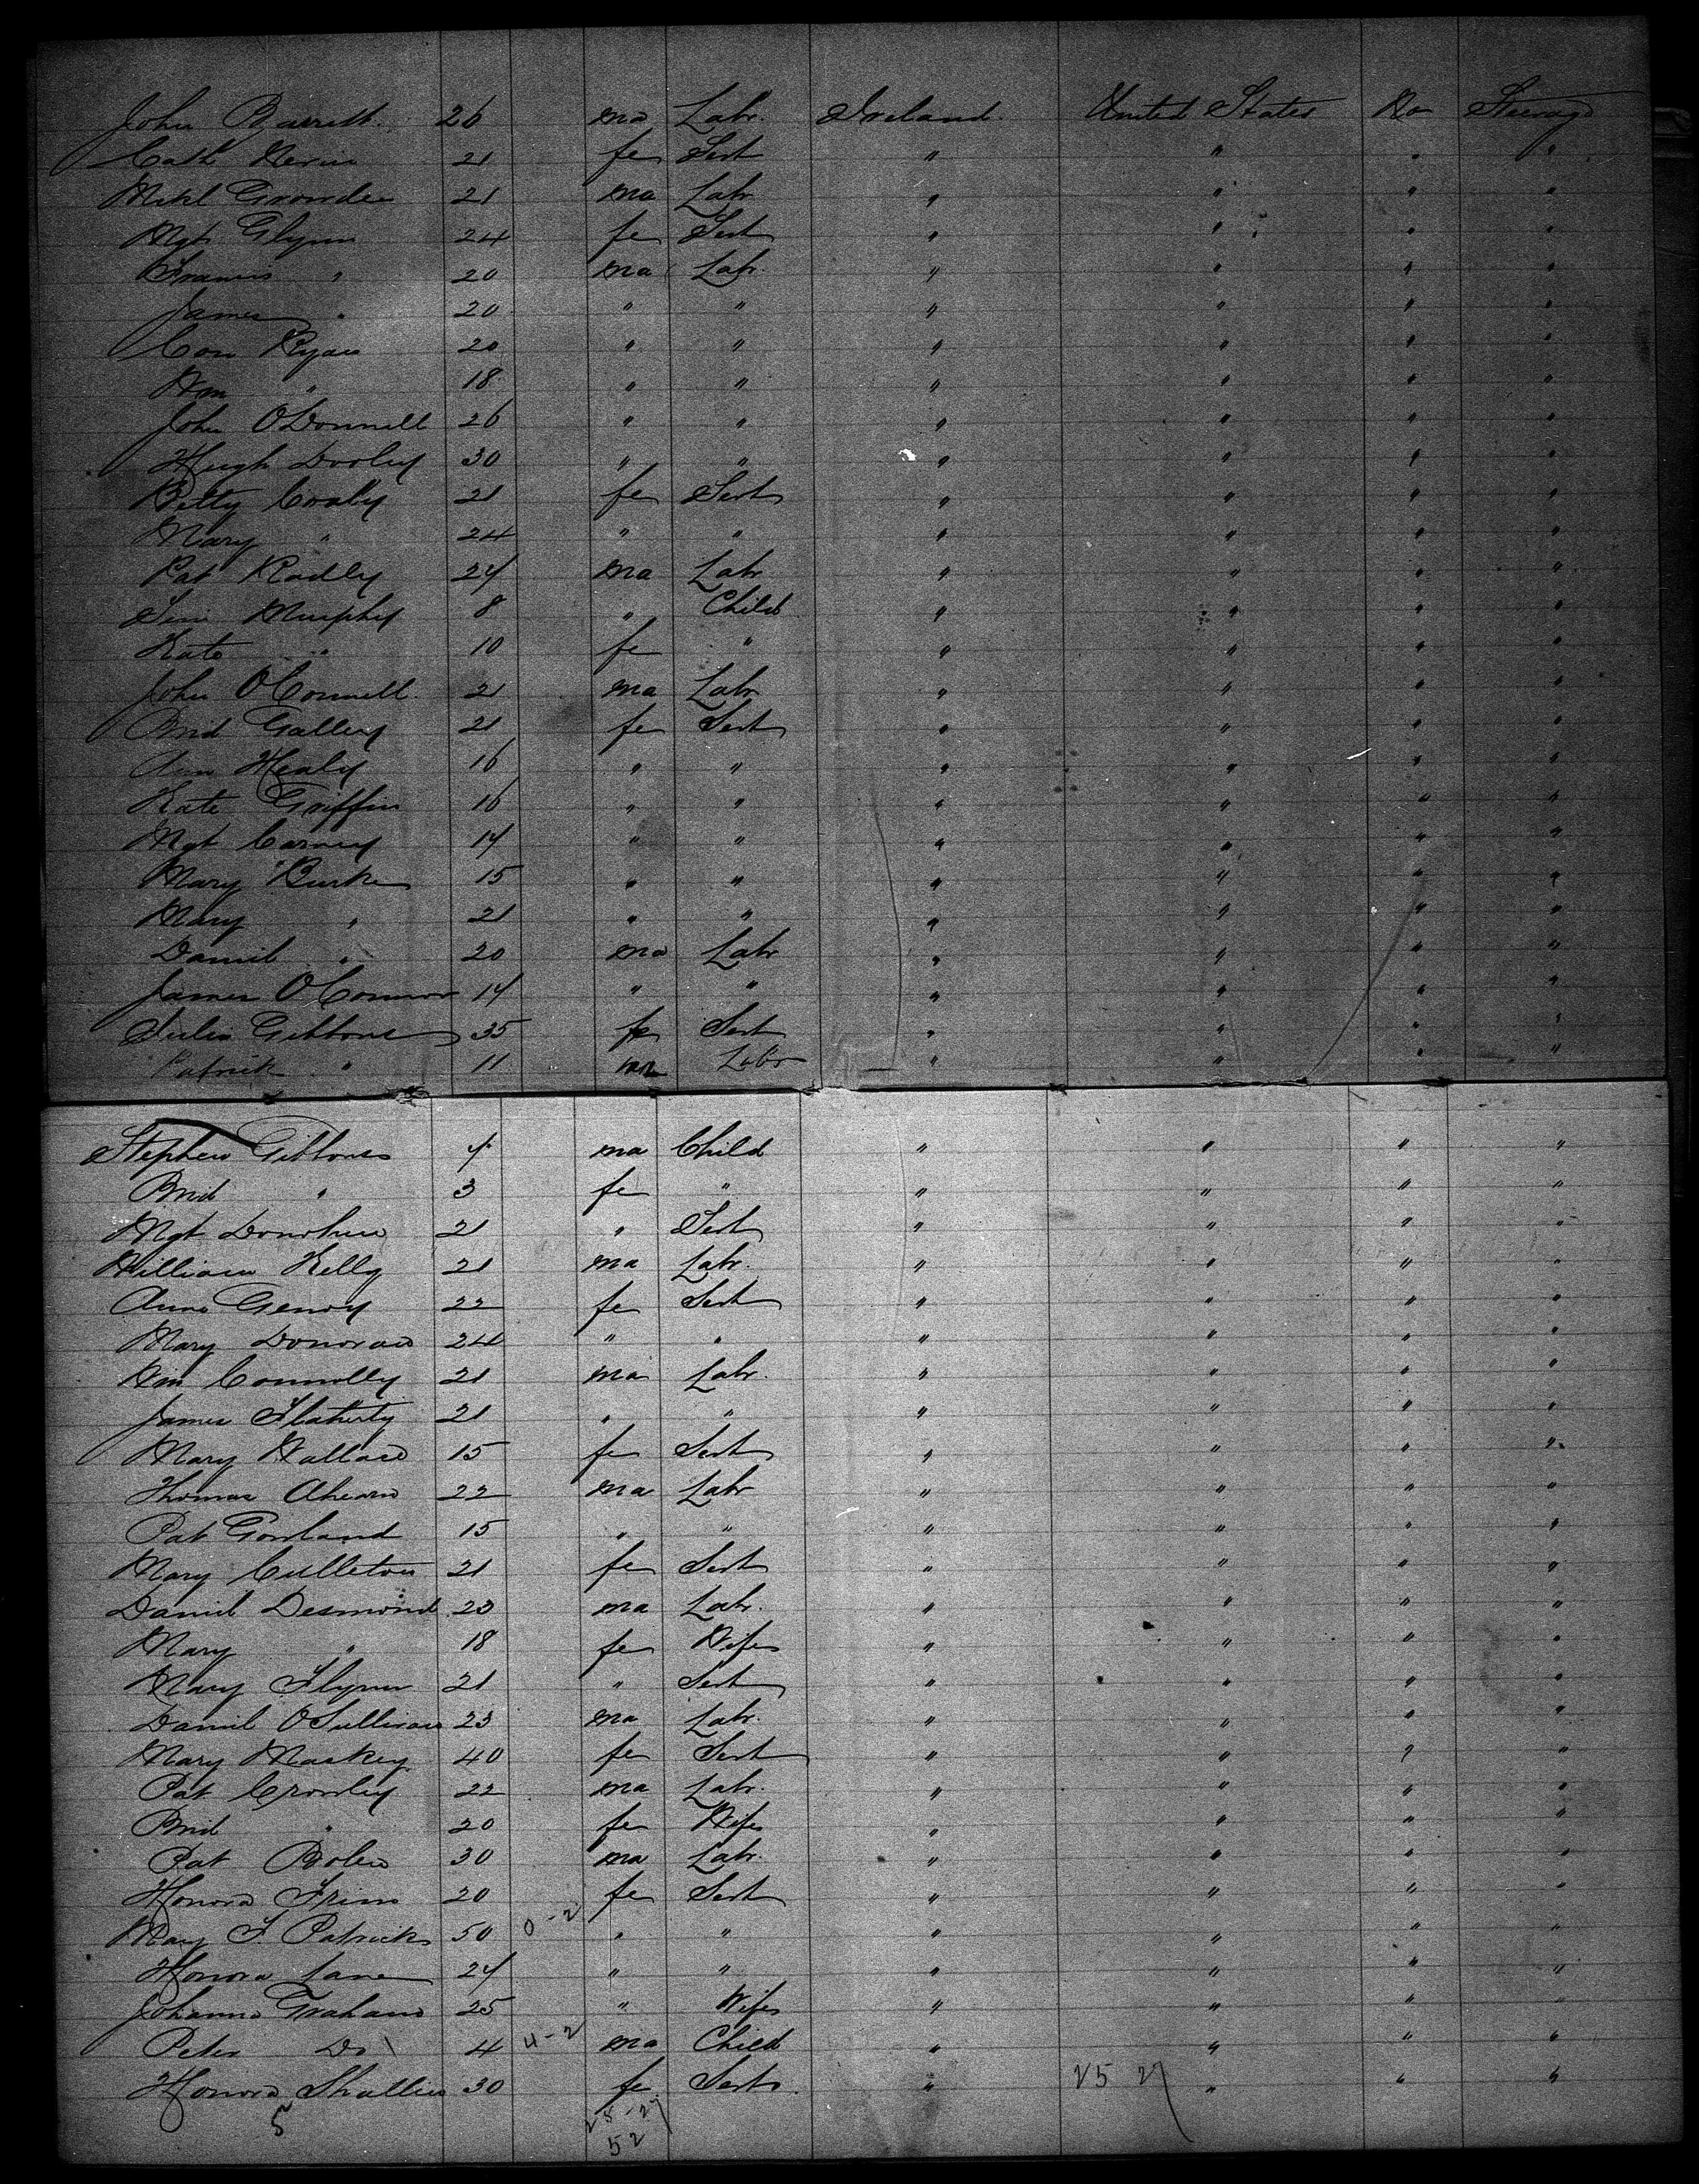 John Barrett 26 ma Labr. Ireland United States Do Steerage
Cath Nevin 21 fe Sert " " " "
Mikl 21 ma Labr " " " "
Mgt Glynn 24 fe Sert " " " "
Francis " 20 ma Labr. " " " "
James " 20 " " " " " "
Con Ryan 20 " " " " " "
Wm " 18 " " " " " "
John O'Donnell 26 " " " " " "
Hugh Dooley 30 " " " " " "
Betty 21 fe Sert " " " "
Mary " 24 " " " " " "
Pat Radly 24 ma Labr " " " "
Murphy 8 " Child " " " "
Kate " 10 fe " " " " "
John O'Connell 21 ma Labr " " " "
Brid Gallery 21 fe Sert " " " "
Ann Healy 16 " " " " " "
Kate Griffin 16 " " " " " "
Mgt Carney 14 " " " " " "
Mary Burke 15 " " " " " "
Mary " 21 " " " " " "
Daniel " 20 ma Labr " " " "
James O'Connor 14 " " " " " "
Julia Gibbons 35 fe Sert " " " "
Patrick " 11 ma Labr " " " "
Stephen Gibbons 4 ma Child " " " "
Brid " 3 fe " " " " "
Mgt Donohue 21 " Sert " " " "
William Kelly 21 ma Labr. " " " "
Anne 22 fe Sert " " " "
Mary Donovan 24 " " " " " "
Wm Connolly 21 ma Labr. " " " "
James Flaherty 21 " " " " " "
Mary Wallace 15 fe Sert " " " "
Thomas Ahearn 22 ma Labr " " " "
Pat 15 " " " " " "
Mary Culleton 21 fe Sert " " " "
Daniel Desmond 23 ma Labr. " " " "
Mary " 18 fe Wife " " " "
Mary Flynn 21 " Sert " " " "
Daniel O'Sullivan 23 ma Labr. " " " "
Mary Mackey 40 fe Sert " " " "
Pat Crowley 22 ma Labr. " " " "
Brid " 20 fe Wife " " " "
Pat Bolen 30 ma Labr. " " " "
Honora 20 fe Sert " " " "
Mary F. Patrick 50 0-2 " " " " " "
Honora Lane 24 " " " " " "
Johanna Graham 25 " Wife " " " "
Peter Do 4 4-2 ma Child " " " "
Honora 30 fe Sert. " 25 27 " " "
5 25-27
52